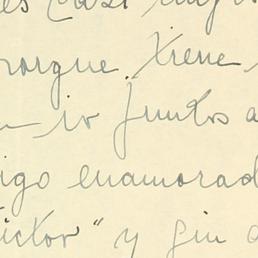 es casi
porque. Irene
ir juntos a
igo enamorad
ictor" y sin